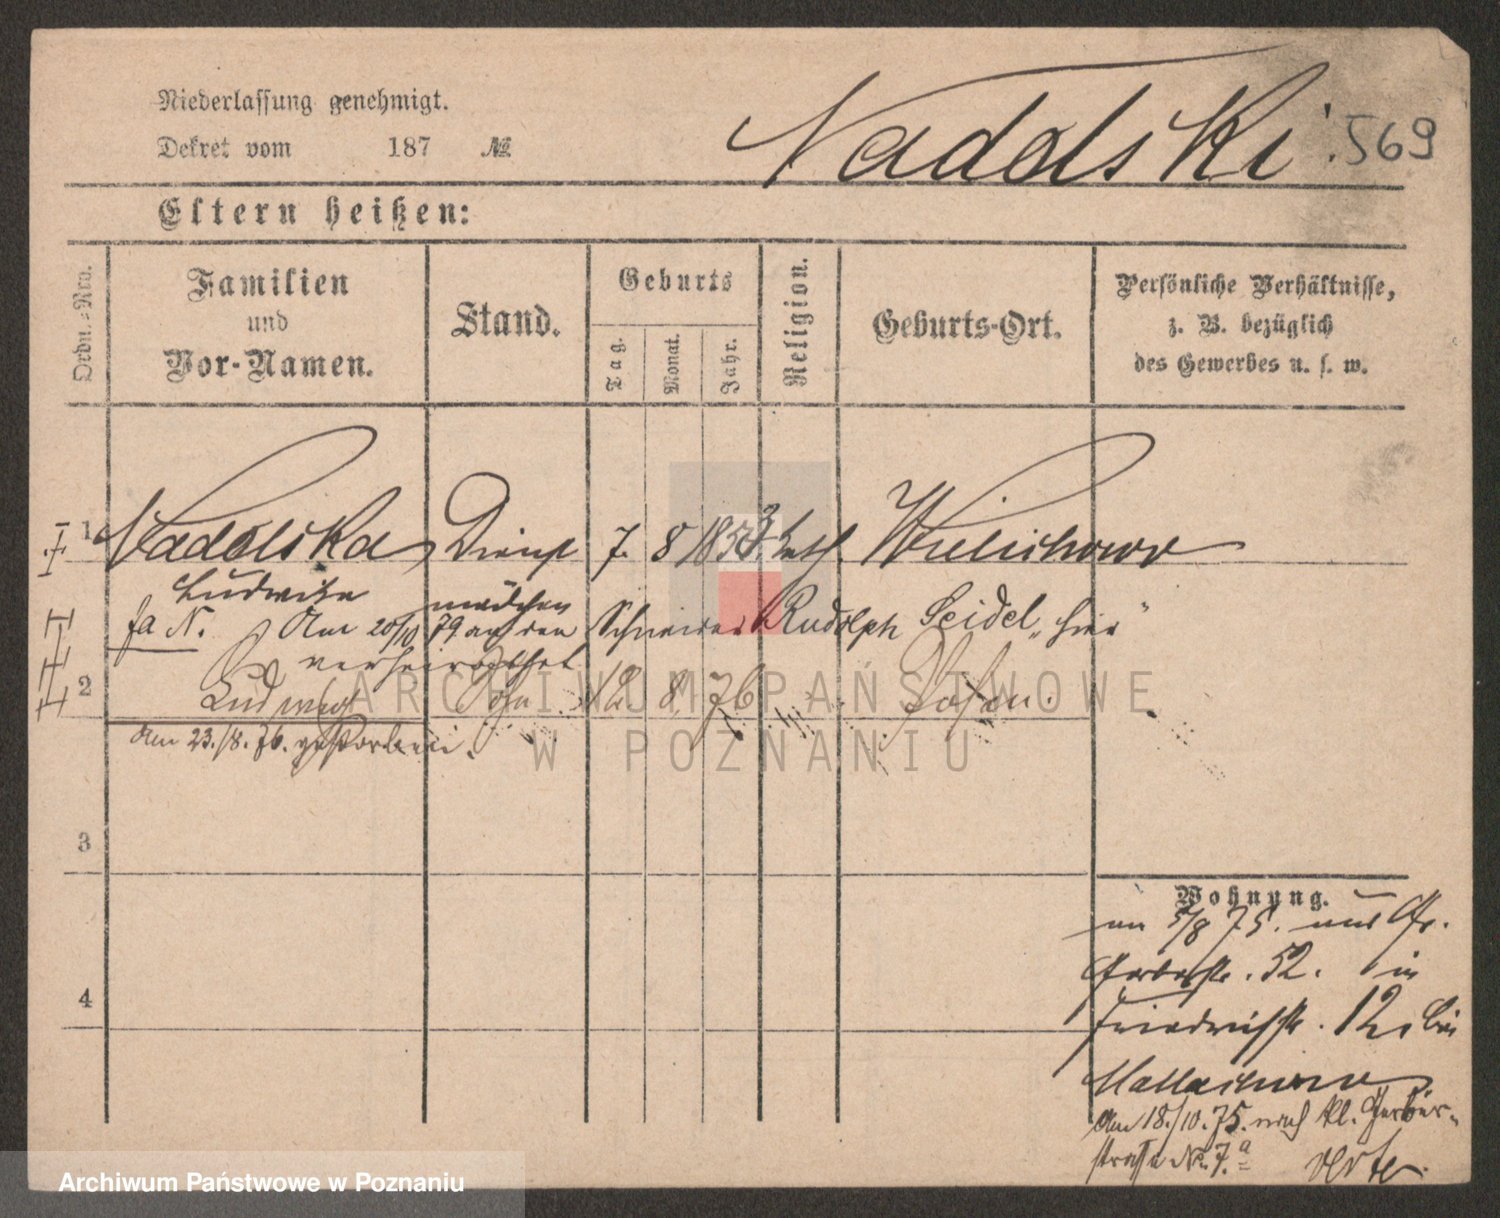 Niederlassung genehmigt.
Nadolski
.569
Dekret vom 187 №
Eltern heißen:
Ordn.-Nro.
Familien
und
Vor-Namen.
Stand.
Geburts
Tag.
Monat.
Jahr.
Religion.
Geburts-Ort.
Persönliche Verhältnisse,
z. B. bezüglich
des Gewerbes u. s. w.
1 Nadolska Dienst 7. 8 1853. kath. Wielichowo
Ludwika mädchen
Am 20/10 79 an den Schneider Rudolph Seidel hier
verheirathet
2 Ludwig Sohn 12. 8. 76 Posen.
am 23./8. 76. gestorben.
3
4
Wohnung.
am 5/8 75. aus Gr.
Gerberstr. 52. in
Friedrichstr. 12. bei
Am 18./10. 75. nach kl. Gerber-
straße No. 7.a
verte.
ARCHIWUM PAŃSTWOWE
W POZNANIU
Archiwum Państwowe w Poznaniu